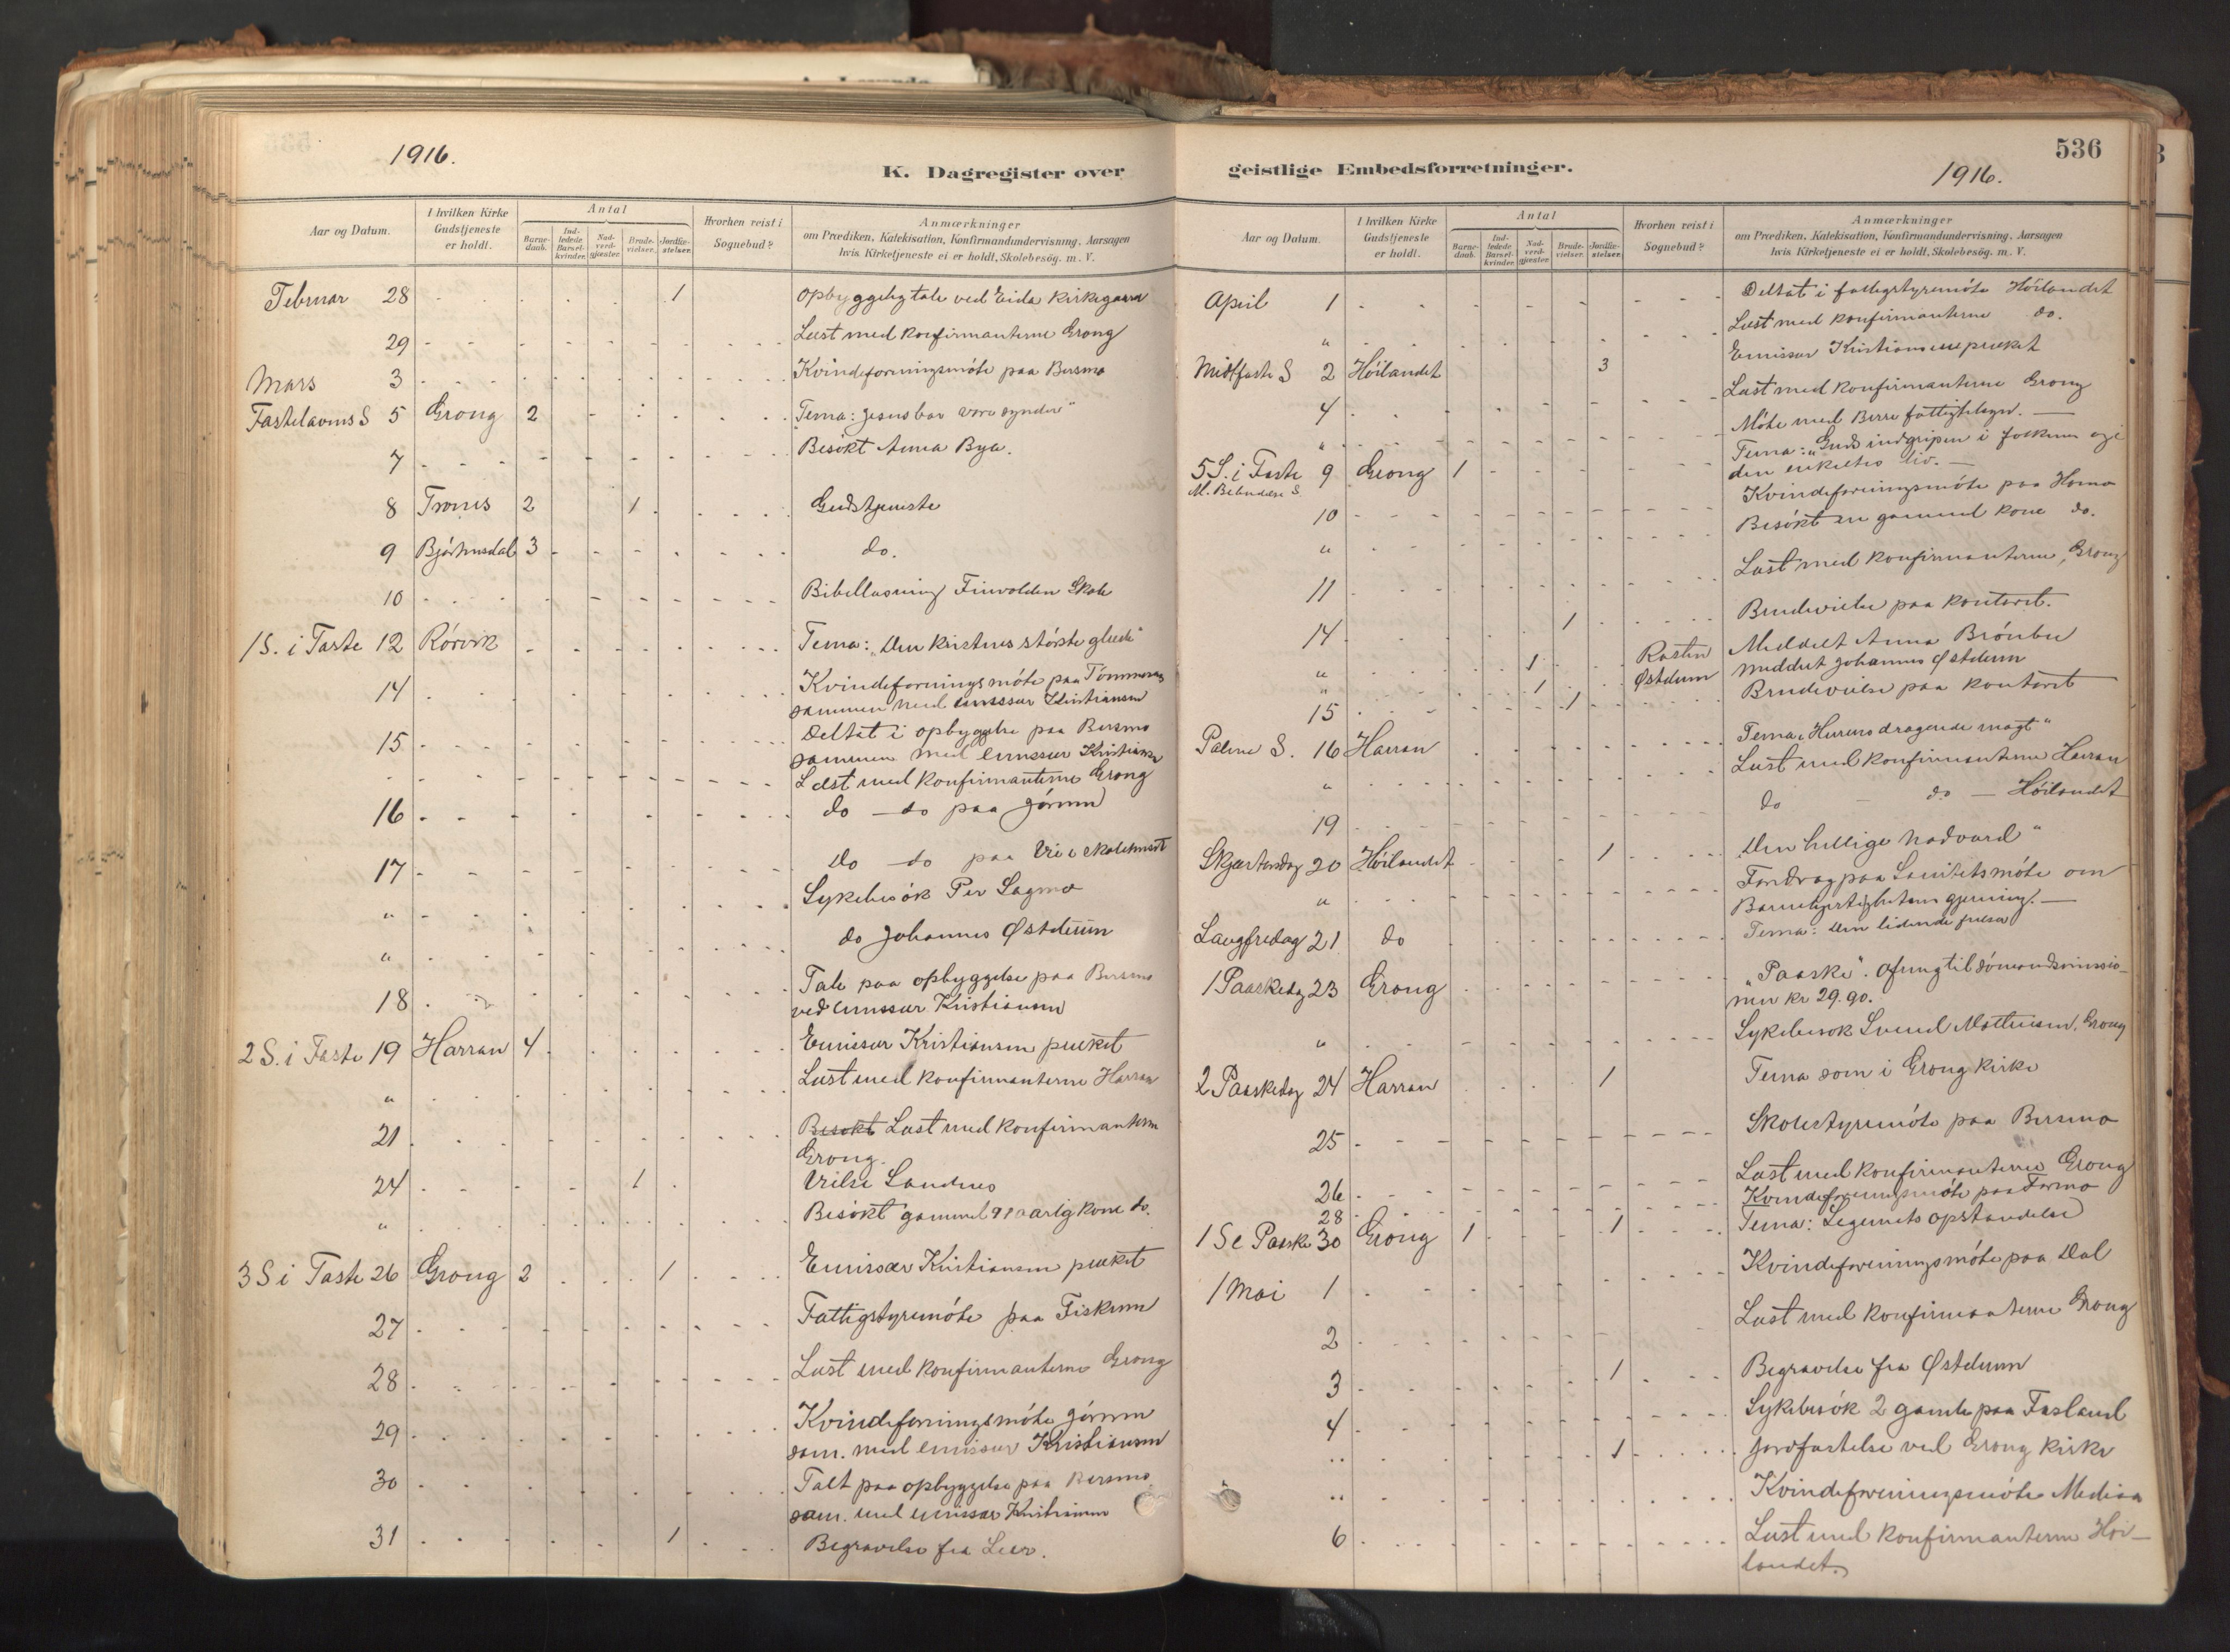 1916.
K. Dagregister over
Aar og Datum.
I hvilken Kirke Gudstjeneste er holdt.
Antal
Barnedaab.
Indledede Barselkvinder.
Nadverdgjester.
Brudevielser.
Jordfæstelser.
Hvorhen reist i Sognebud?
Anmærkninger
om Prædiken, Katekisation, Konfirmandundervisning, Aarsagen
hvis Kirketjeneste ei er holdt, Skolebesøg. m. V.
Februar 28 1 Opbyggelig tale ved Eida Kirkegaard
29 Læst med konfirmanterne Grong
Mars 3 Kvindeforningsmöte paa Bersmo
Fastelavns S 5 Grong 2 Tema: Jesus bar vore synder"
7 Besökt Anna Bya.
8 Trones 2 1 Gudstjeneste
9 Bjørhusdal 3 do.
10 Bibellæsning Finvolden Skole
1 S. i Faste 12 Rörvik Tema: „Den kristnes störste glæde"
14 Kvindeforningsmöte paa Tömmeraas
sammen med emissær Kristiansen
15 Deltat i opbyggelse paa Bersmo
sammen med emissær Kristiansen
Læst med konfirmanterne Grong
16 do — do paa Jörum
17 do — do paa skolehuset
" Sykebesök Per Sagmo
" do Johannes Østdeum
18 Tale paa opbyggelse paa Bersmo
ved emissær Kristiansen
2 S. i Faste 19 Harran 4 Emissær Kristiansen præket
" Læst med konfirmanterne Harran
21 Besökt Læst med konfirmanterne
Grong.
24 1 Vielse Sandnes
" Besökt gammel 91 aarig kone do.
3 S i Faste 26 Grong 2 1 Emissær Kristiansen præket
27 Fattigstyremöte paa Fiskum
28 Læst med konfirmanterne Grong
29 Kvindeforningsmöte Jörum
sam. med emissær Kristiansen
30 Talt paa opbyggelse paa Bersmo
sam. med emissær Kristiansen
31 1 Begravelse fra Lier.
536
geistlige Embedsforretninger.
1916.
Aar og Datum.
I hvilken Kirke Gudstjeneste er holdt.
Antal
Barnedaab.
Indledede Barselkvinder.
Nadverdgjester.
Brudevielser.
Jordfæstelser.
Hvorhen reist i Sognebud?
Anmærkninger
om Prædiken, Katekisation, Konfirmandundervisning, Aarsagen
hvis Kirketjeneste ei er holdt, Skolebesøg. m. V.
April 1 Deltat i fattigstyremöte Höilandet
" Læst med konfirmanterne do.
Midtfaste S 2 Höilandet 3 Emissær Kristiansen præket
4 Læst med konfirmanterne Grong
" Möte med fattigtilsyn. —
5 S. i Faste 9 Grong 1 Tema: „Guds indgripen i folkenes og i
M. Bebudelse S. den enkeltes liv. —
10 Kvindeforeningsmöte paa Homo
" Besökt en gammel kone do.
11 Læst med konfirmanterne, Grong
14 1 Brudevielse paa kontoret.
" 1 Rosten Meddelt Anna Brönbu
" 1 Østdeum meddelt Johannes Østdeum
15 1 Brudevielse paa kontoret
Palme S. 16 Harran Tema: dragende magt"
" Læst med konfirmanterne Harran
19 do — do — Höilandet
Skjærtorsdag 20 Höilandet 1 „Den hellige nadverd"
" Foredrag paa Sanitetsmöte om
Barmhjertighetens gjerning. —
Langfredag 21 do Tema: Den lidende frelser
1 Paaskedag 23 Grong „Paaske". Ofring til sömandsmissio-
nen kr 29.90.
" Sykebesök Svend Mathiesen, Grong
2 Paaskedag 24 Harran 1 Tema som i Grong kirke
25 Skolestyremöte paa Bersmo
26 Læst med konfirmanterne Grong
28 Kvindeforeningsmöte paa Formo
1 S e Paaske 30 Grong 1 1 Tema: Legemets opstandelse
1 Mai 1 Kvindeforeningsmöte paa Dal
2 Læst med konfirmanterne Grong
3 1 Begravelse fra Østdeum
4 Sykebesök 2 gamle paa Fasland
" 1 Jordfæstelse ved Grong kirke
" Kvindeforeningsmöte Mediaa
6 Læst med konfirmanterne Höi-
landet.